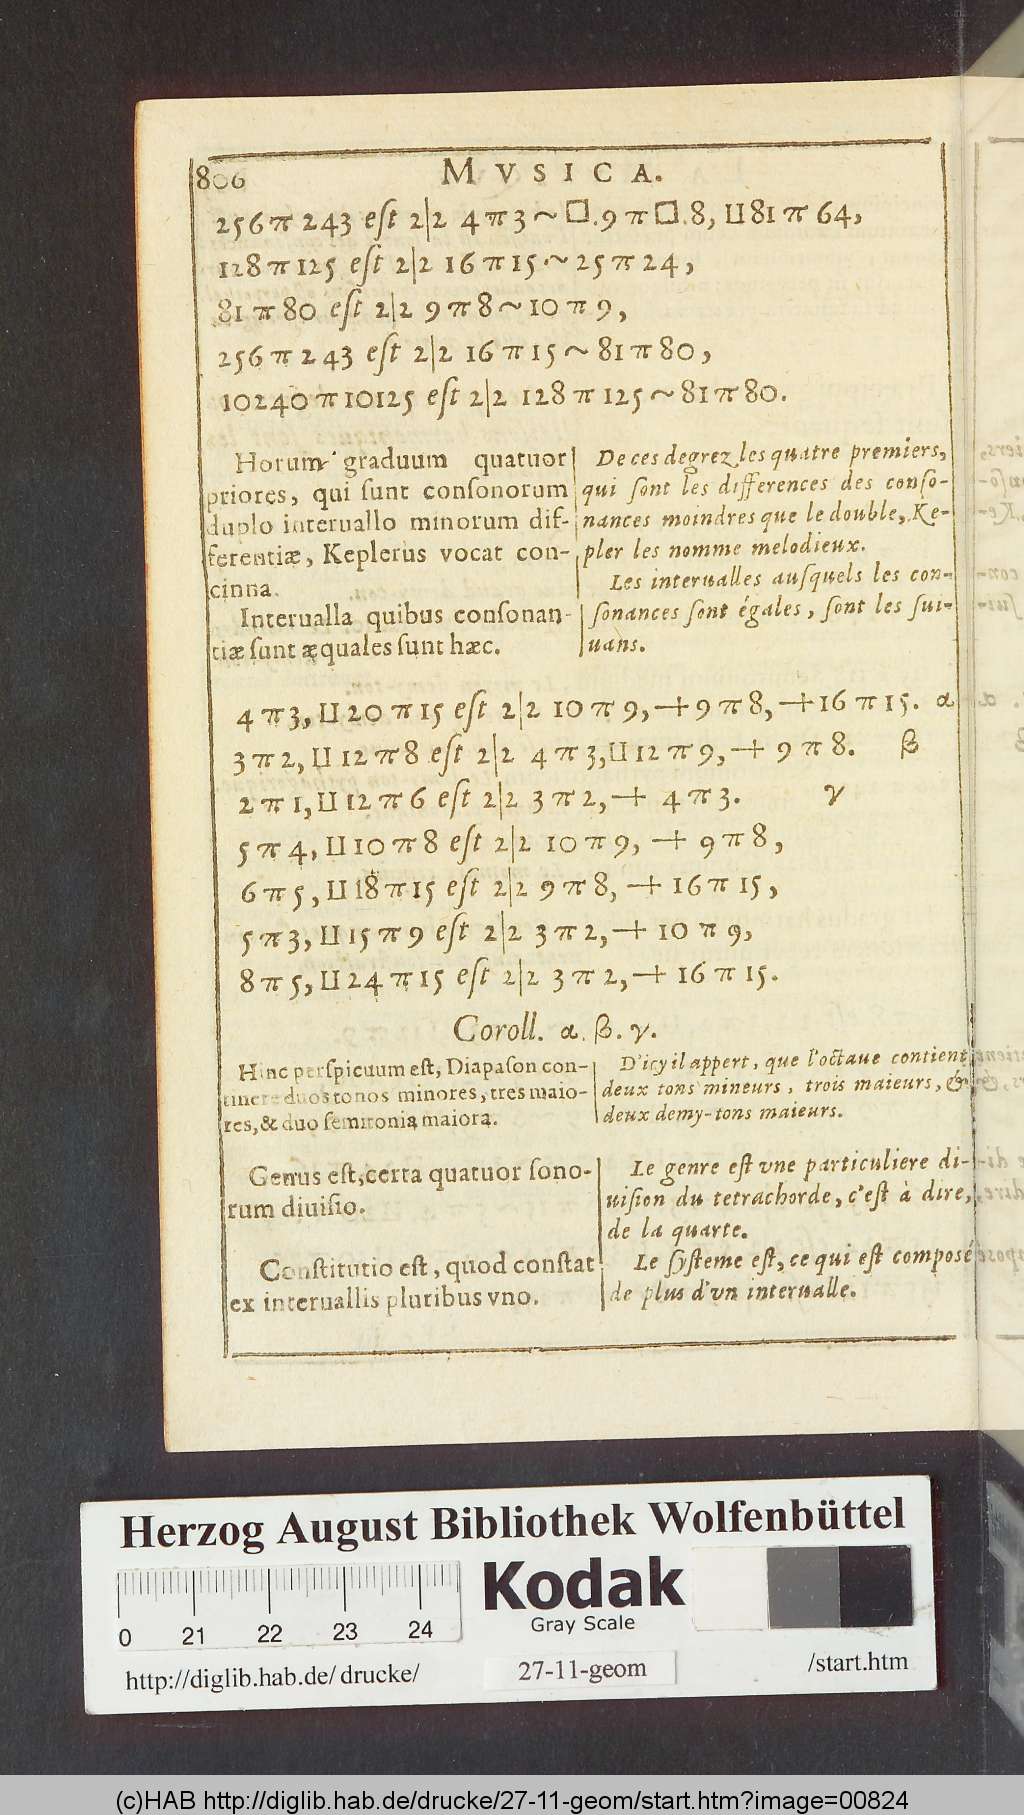 806
MVSICA.
256 π 243 eſt 2|2 4 π 3 ~ □.9 π □.8, ⊔ 81 π 64,
128 π 125 eſt 2|2 16 π 15 ~ 25 π 24,
81 π 80 eſt 2|2 9 π 8 ~ 10 π 9,
256 π 243 eſt 2|2 16 π 15 ~ 81 π 80,
10240 π 10125 eſt 2|2 128 π 125 ~ 81 π 80.
Horum graduum quatuor
priores, qui ſunt conſonorum
duplo interuallo minorum dif-
ferentiæ, Keplerus vocat con-
cinna.
Interualla quibus conſonan-
tiæ ſunt æquales ſunt hæc.
De ces degrez les quatre premiers,
qui ſont les differences des conſo-
nances moindres que le double, Ke-
pler les nomme melodieux.
Les interualles auſquels les con-
ſonances ſont égales, ſont les ſui-
uans.
4 π 3, ⊔ 20 π 15 eſt 2|2 10 π 9, + 9 π 8, + 16 π 15. α
3 π 2, ⊔ 12 π 8 eſt 2|2 4 π 3, ⊔ 12 π 9, + 9 π 8. β
2 π 1, ⊔ 12 π 6 eſt 2|2 3 π 2, + 4 π 3. γ
5 π 4, ⊔ 10 π 8 eſt 2|2 10 π 9, + 9 π 8,
6 π 5, ⊔ 18 π 15 eſt 2|2 9 π 8, + 16 π 15,
5 π 3, ⊔ 15 π 9 eſt 2|2 3 π 2, + 10 π 9,
8 π 5, ⊔ 24 π 15 eſt 2|2 3 π 2, + 16 π 15.
Coroll. α. β. γ.
Hinc perſpicuum eſt, Diapaſon con-
tinere duos tonos minores, tres maio-
res, & duo ſemitonia maiora.
D'icy il appert, que l'octaue contient
deux tons mineurs, trois maieurs, &
deux demy-tons maieurs.
Genus eſt, certa quatuor ſono-
rum diuiſio.
Le genre eſt vne particuliere di-
uiſion du tetrachorde, c'eſt à dire,
de la quarte.
Conſtitutio eſt, quod conſtat
ex interuallis pluribus vno.
Le ſyſteme eſt, ce qui eſt compoſé
de plus d'vn interualle.
Herzog August Bibliothek Wolfenbüttel
Kodak
Gray Scale
0 21 22 23 24
http://diglib.hab.de/drucke/ 27-11-geom /start.htm
(c)HAB http://diglib.hab.de/drucke/27-11-geom/start.htm?image=00824